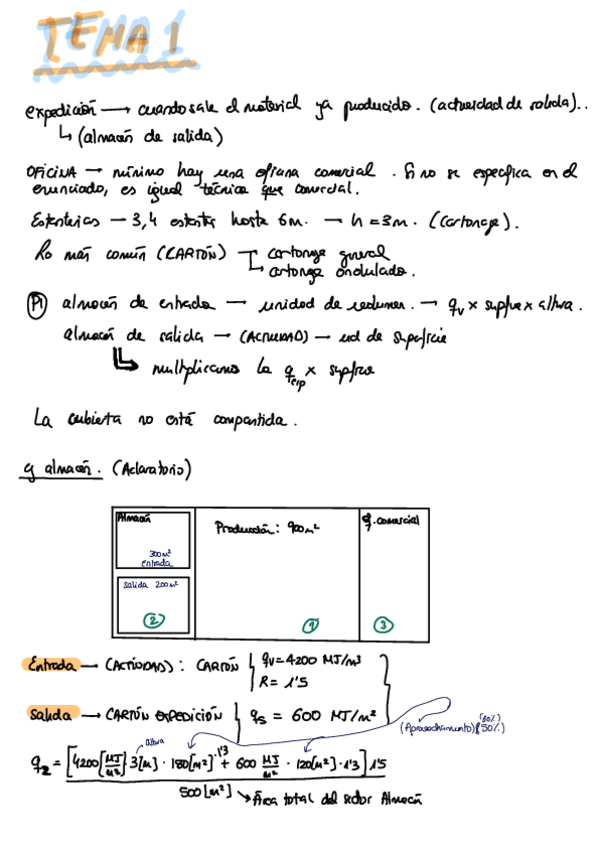 TEMA 1
expedición → cuando sale el material ya producido. (actividad de salida)..
↳ (almacén de salida)
OFICINA → mínimo hay una oficina comercial. Si no se especifica en el
enunciado, es igual técnica que comercial.
Estanterías — 3,4 estantes hasta 6m. → h = 3m. (cartonaje).
Lo más común (CARTÓN) cartonaje general
cartonaje ondulado.
P1 almacén de entrada → unidad de volumen. → qv × supfície × altura.
almacén de salida → (ACTIVIDAD) → ud de superficie
↳ multiplicamos la q exp × supfície
La cubierta no está compartida.
q almacén. (Aclaratorio)
Almacén
300 m²
entrada
salida 200 m²
②
Producción: 900 m²
①
of. comercial
③
Entrada → (ACTIVIDAD): CARTÓN qv = 4200 MJ/m³
R = 1'5
Salida → CARTÓN EXPEDICIÓN qs = 600 MJ/m²
(Aprovechamiento) (60%)
altura
q2 = [4200 [MJ/m³] · 3[m] · 180[m²] · 1'3 + 600 MJ/m² · 120[m²] · 1'3] 1'5
500 [m²] → Área total del sector Almacén